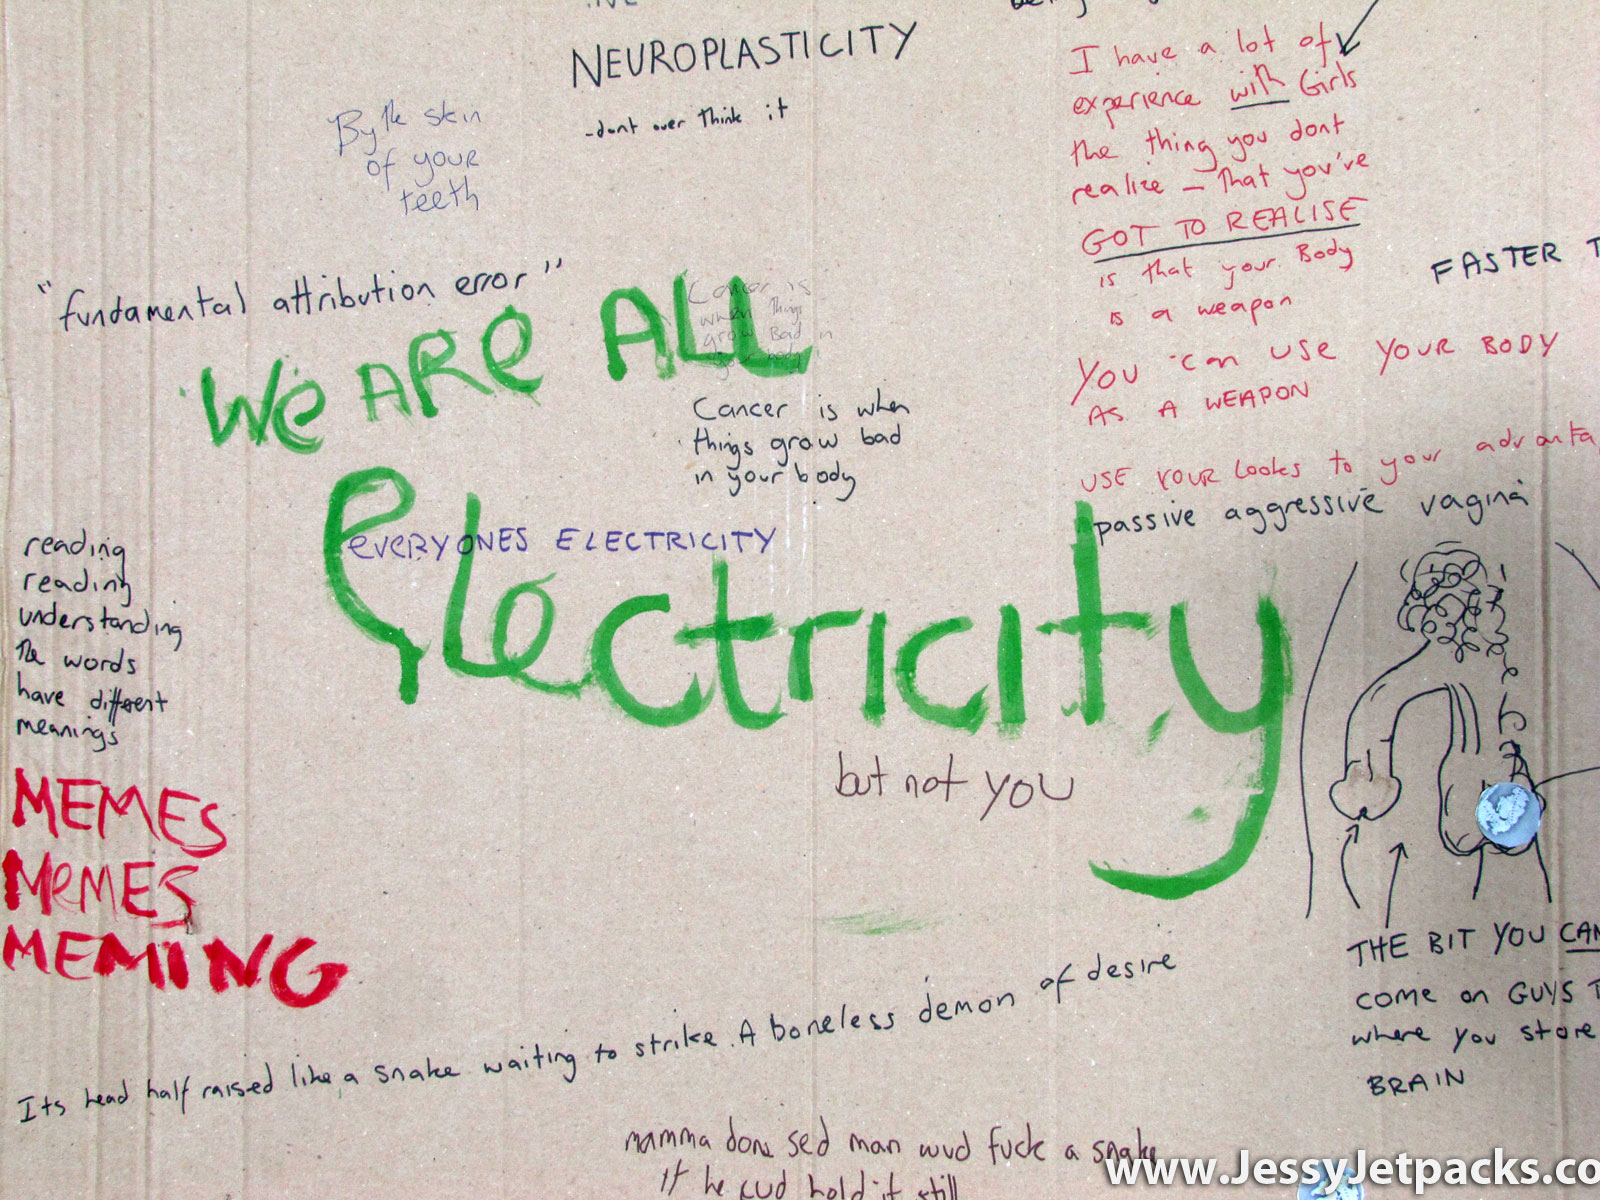 NEUROPLASTICITY
-dont over think it
By the skin
of your
teeth
I have a lot of
experience with Girls
the thing you dont
realize - that you've
GOT TO REALISE
is that your Body
is a weapon
YOU can USE YOUR BODY
AS A WEAPON
USE YOUR Looks to your advanta
FASTER T
"fundamental attribution error"
We ARe ALL
electricity
Cancer is
when things
grow Bad in
your body
Cancer is when
things grow bad
in your body
eVERYONES ELECTRICITY
passive aggressive vagina
reading
reading
understanding
the words
have different
meanings
but not YOU
MEMES
MeMES
MEMING
THE BIT YOU CAN
COME on GUYS T
where you store
BRAIN
Its head half raised like a snake waiting to strike. A boneless demon of desire
mamma done sed man wud fuck a snake
If he cud hold it still
www.JessyJetpacks.co